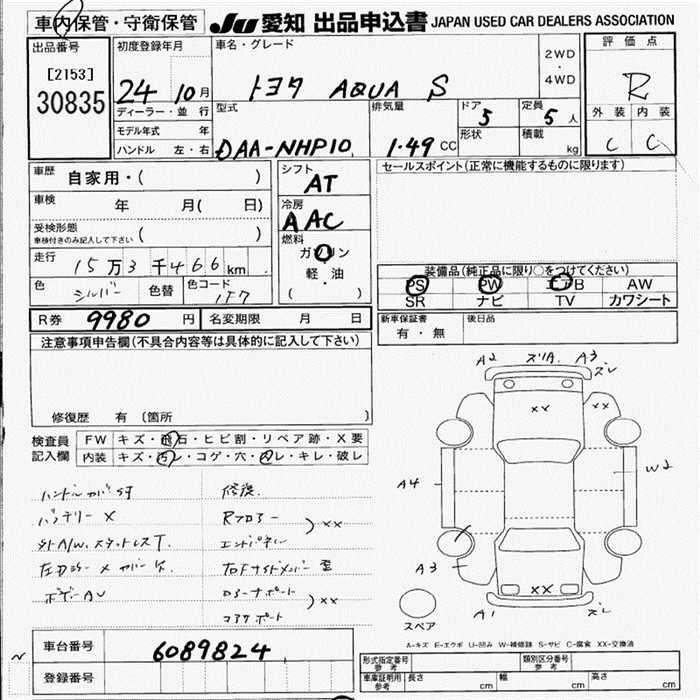 車内保管・守衛保管
JU 愛知 出品申込書 JAPAN USED CAR DEALERS ASSOCIATION
出品番号
[2153]
30835
初度登録年月
24 10月
ディーラー・並行
モデル年式 年
ハンドル 左・右
車名・グレード
トヨタ AQUA S
2WD
・
4WD
評価点
R
外装 内装
C C
型式
DAA-NHP10
排気量
1.49 CC
ドア
5
形状
定員
5 人
積載
kg
車歴
自家用・( )
車検 年 月( 日)
受検形態
車検付きのみ記入して下さい ( )
走行 15万3千466km
色 シルバー 色替 色コード 1F7
シフト
AT
冷房
AAC
燃料
ガソリン
・
軽・油
( )
セールスポイント(正常に機能するものに限ります)
装備品(純正品に限り○をつけてください)
PS PW エアB AW
SR ナビ TV カワシート
R券 9980 円 名変期限 月 日
新車保証書
有・無
後日品
注意事項申告欄(不具合内容等は具体的に記入して下さい)
修復歴 有 〔箇所 〕
検査員
記入欄
FW キズ・飛石・ヒビ割・リペア跡・X要
内装 キズ・汚レ・コゲ・穴・スレ・キレ・破レ
ハンドルカバー付
バッテリー X
外A/W.スタットレスT.
ボディーAU
修復
Rフロアー
エンドパネル
)XX
)XX
コアサポート
A2 ズリA. A3 ズレ
XX XX
A4
W2
A3
XX
A1 ズレ
スペア
A-キズ E-エクボ U-凹み W-補修跡 S-サビ C-腐食 XX-交換済
車台番号 6089824
登録番号
形式指定番号
参考
類別区分番号
参考
車庫証明用
参考
長さ cm 幅 cm 高さ cm